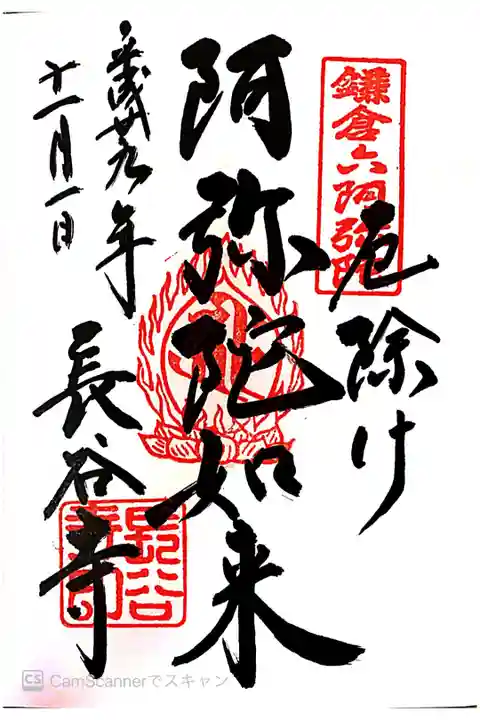 鎌倉六阿弥陀
厄除け
阿弥陀如来
長谷寺
平成廿九年
十一月一日
長谷寺印
CS CamScannerでスキャン